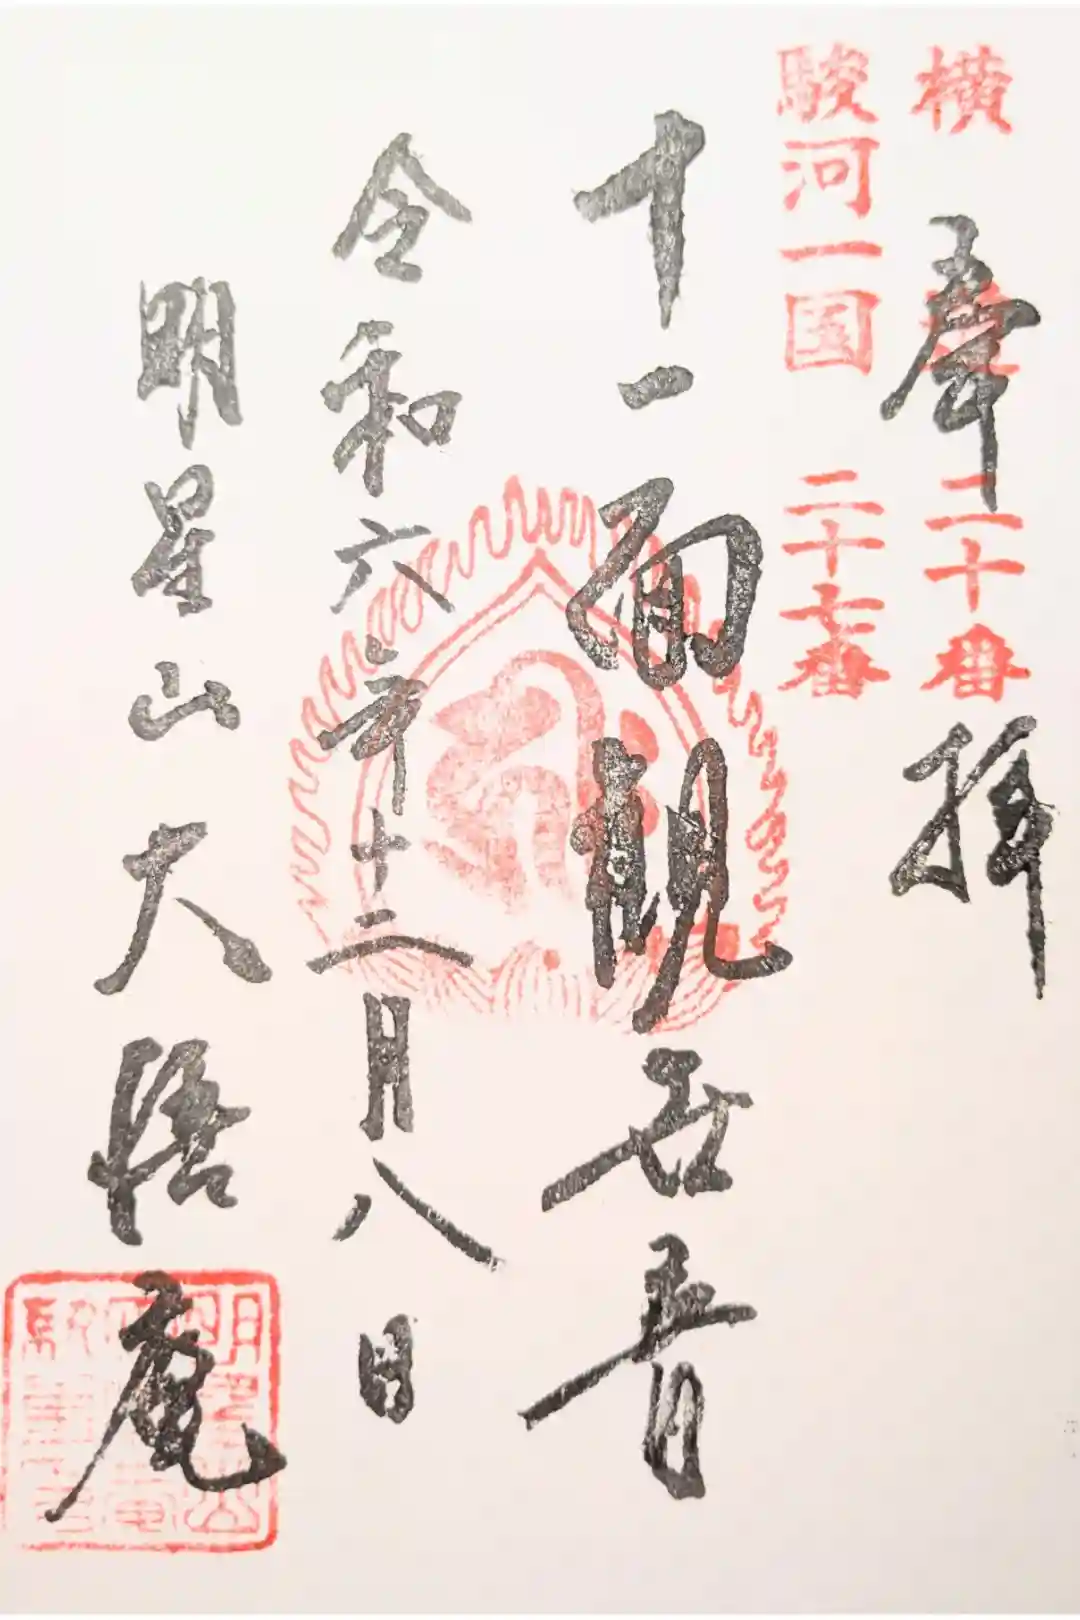 横道 二十番
駿河一国 二十七番
奉拝
十一面観世音
令和六年十二月八日
明星山大悟庵